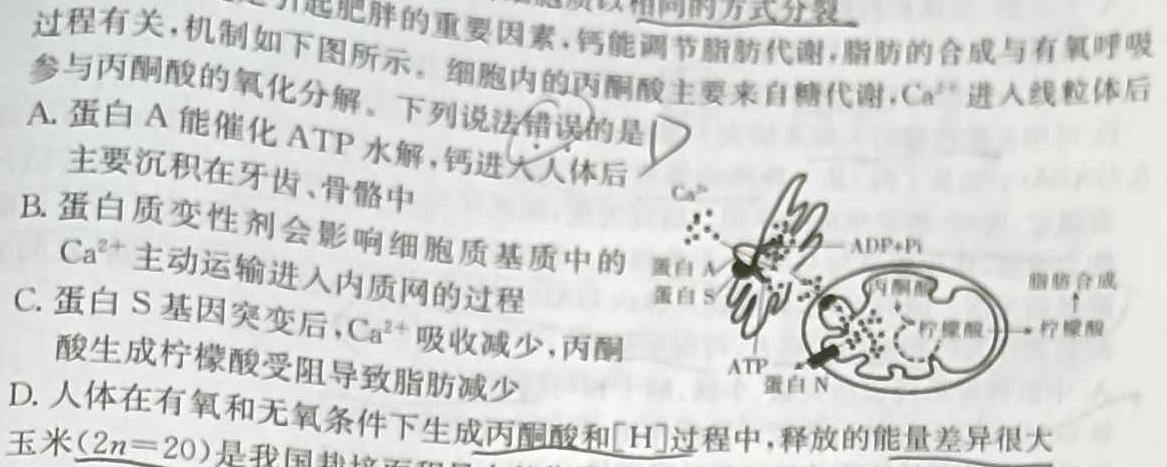 相同的方式分裂
引起肥胖的重要因素,钙能调节脂肪代谢,脂肪的合成与有氧呼吸
过程有关,机制如下图所示。细胞内的丙酮酸主要来自糖代谢,Ca²⁺进入线粒体后
参与丙酮酸的氧化分解。下列说法错误的是
A. 蛋白 A 能催化 ATP 水解,钙进入人体后
主要沉积在牙齿、骨骼中
B. 蛋白质变性剂会影响细胞质基质中的
Ca²⁺主动运输进入内质网的过程
C. 蛋白 S 基因突变后,Ca²⁺吸收减少,丙酮
酸生成柠檬酸受阻导致脂肪减少
D. 人体在有氧和无氧条件下生成丙酮酸和[H]过程中,释放的能量差异很大
Ca²⁺
ADP+Pi
蛋白 A
蛋白 S
丙酮酸
脂肪合成
柠檬酸
柠檬酸
ATP
蛋白 N
玉米(2n=20)是我国栽培面积